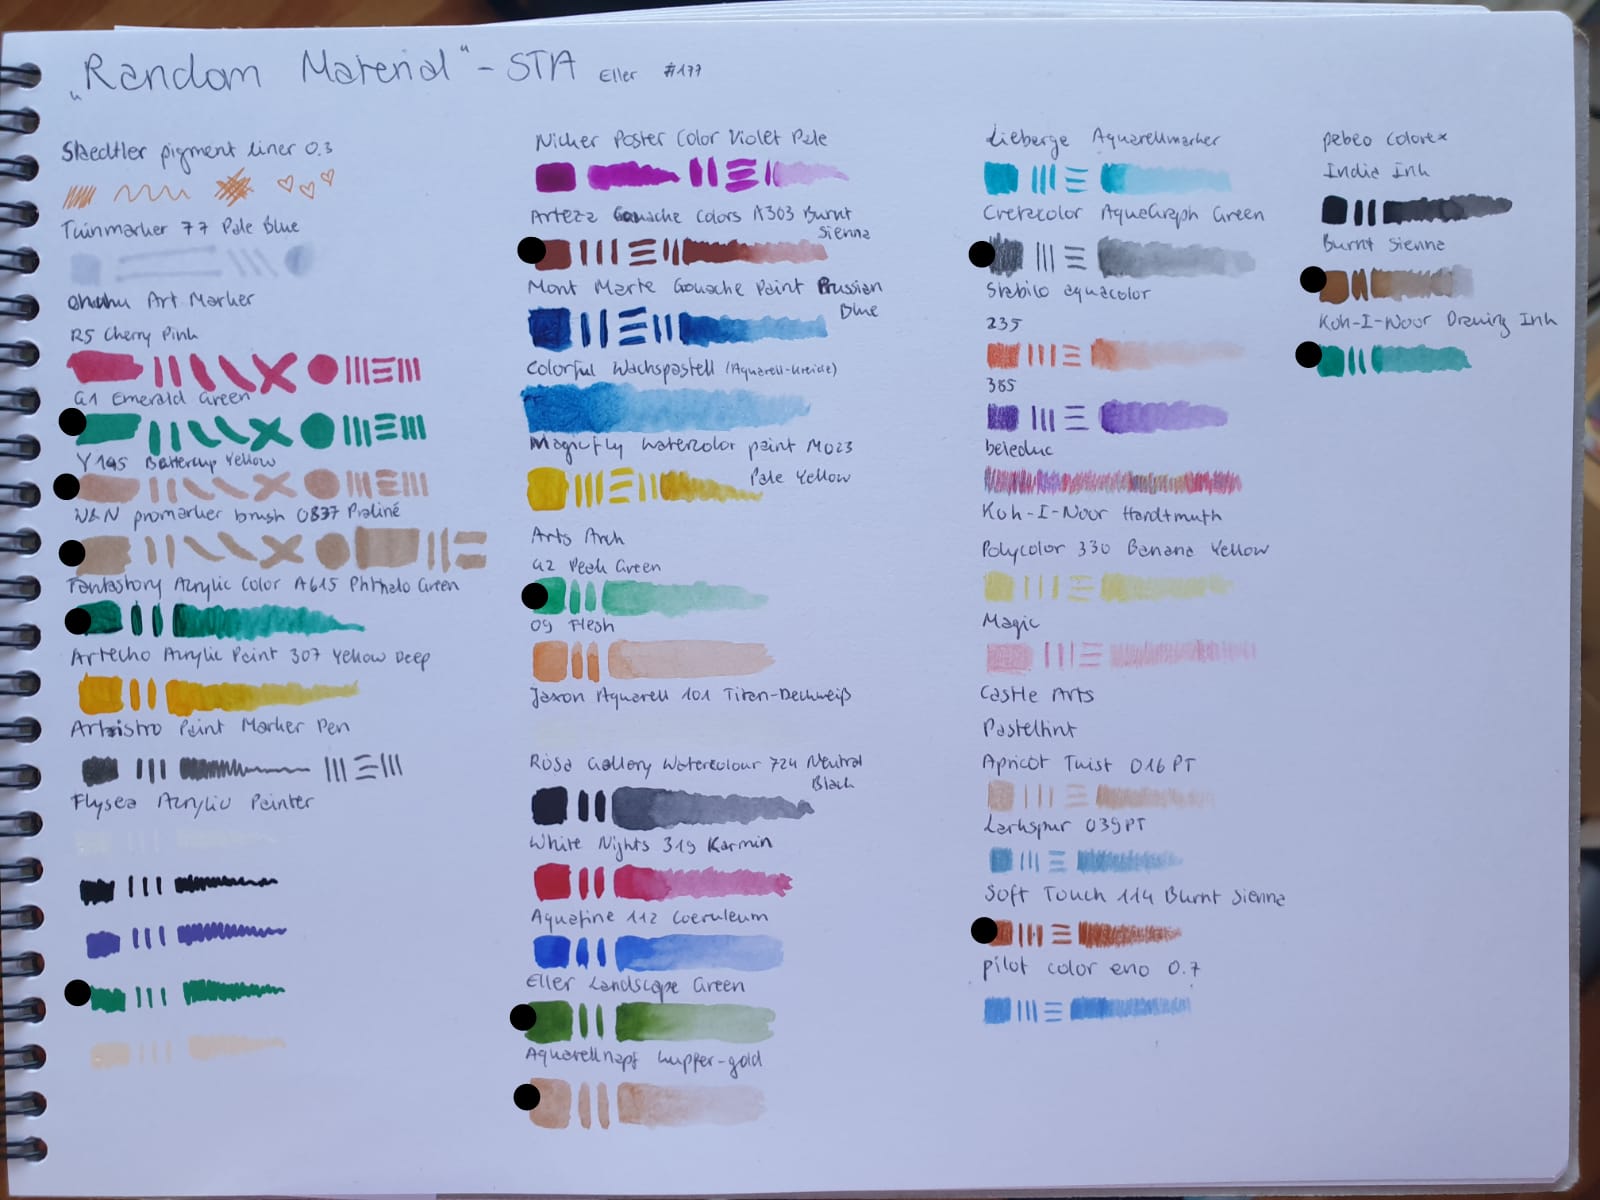 "Random Material" - STA Eller #177
Staedtler pigment liner 0.3
Twinmarker 77 Pale Blue
Ohuhu Art Marker
R5 Cherry Pink
G1 Emerald Green
Y195 Buttercup Yellow
W&N promarker brush O837 Praliné
Fantastory Acrylic Color A615 Phthalo Green
Artecho Acrylic Paint 307 Yellow Deep
Artistro Paint Marker Pen
Flysea Acrylic Painter
Nicker Poster Color Violet Pale
Arteza Gouache Colors A303 Burnt
Sienna
Mont Marte Gouache Paint Prussian
Blue
Colorful Wachspastell (Aquarell-Kreide)
Magicfly Watercolor paint M023
Pale Yellow
Arts Arch
G2 Peak Green
09 Flesh
Jaxon Aquarell 101 Titan-Deckweiß
Rosa Gallery Watercolour 724 Neutral
Black
White Nights 319 Karmin
Aquafine 112 Coeruleum
Eller Landscape Green
Aquarellnapf kupfer-gold
Lieberge Aquarellmarker
Cretacolor AquaGraph Green
Stabilo aquacolor
235
385
beleduc
Koh-I-Noor Hardtmuth
Polycolor 330 Banana Yellow
Magic
Castle Arts
Pasteltint
Apricot Twist 016PT
Larkspur 039PT
Soft Touch 114 Burnt Sienna
pilot color eno 0.7
pebeo colorex
India Ink
Burnt Sienna
Koh-I-Noor Drawing Ink